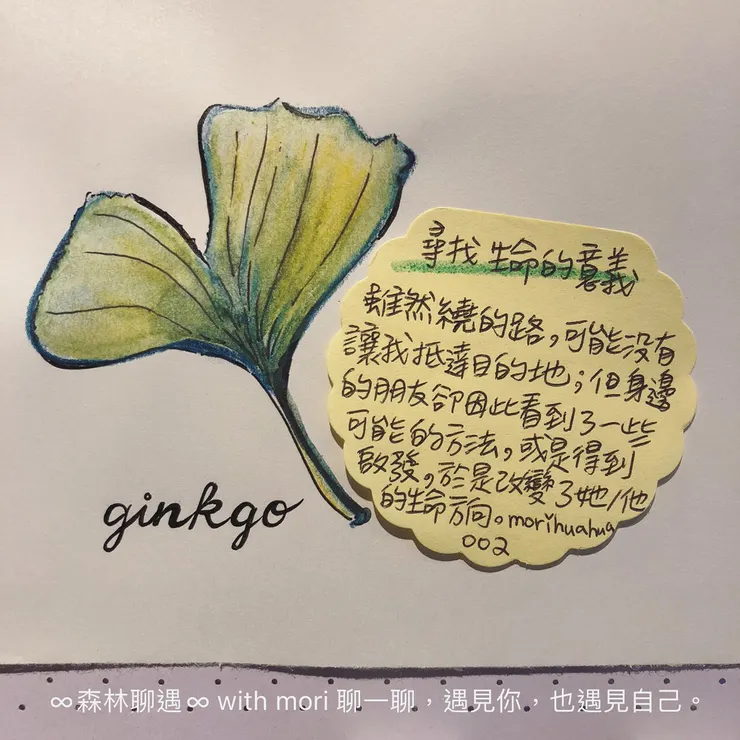 尋找生命的意義
雖然繞的路，可能沒有
讓我抵達目的地；但身邊
的朋友卻因此看到了一些
可能的方法，或是得到
啟發，於是改變了她/他
的生命方向。morihuahua
002
ginkgo
∞森林聊遇∞ with mori 聊一聊，遇見你，也遇見自己。